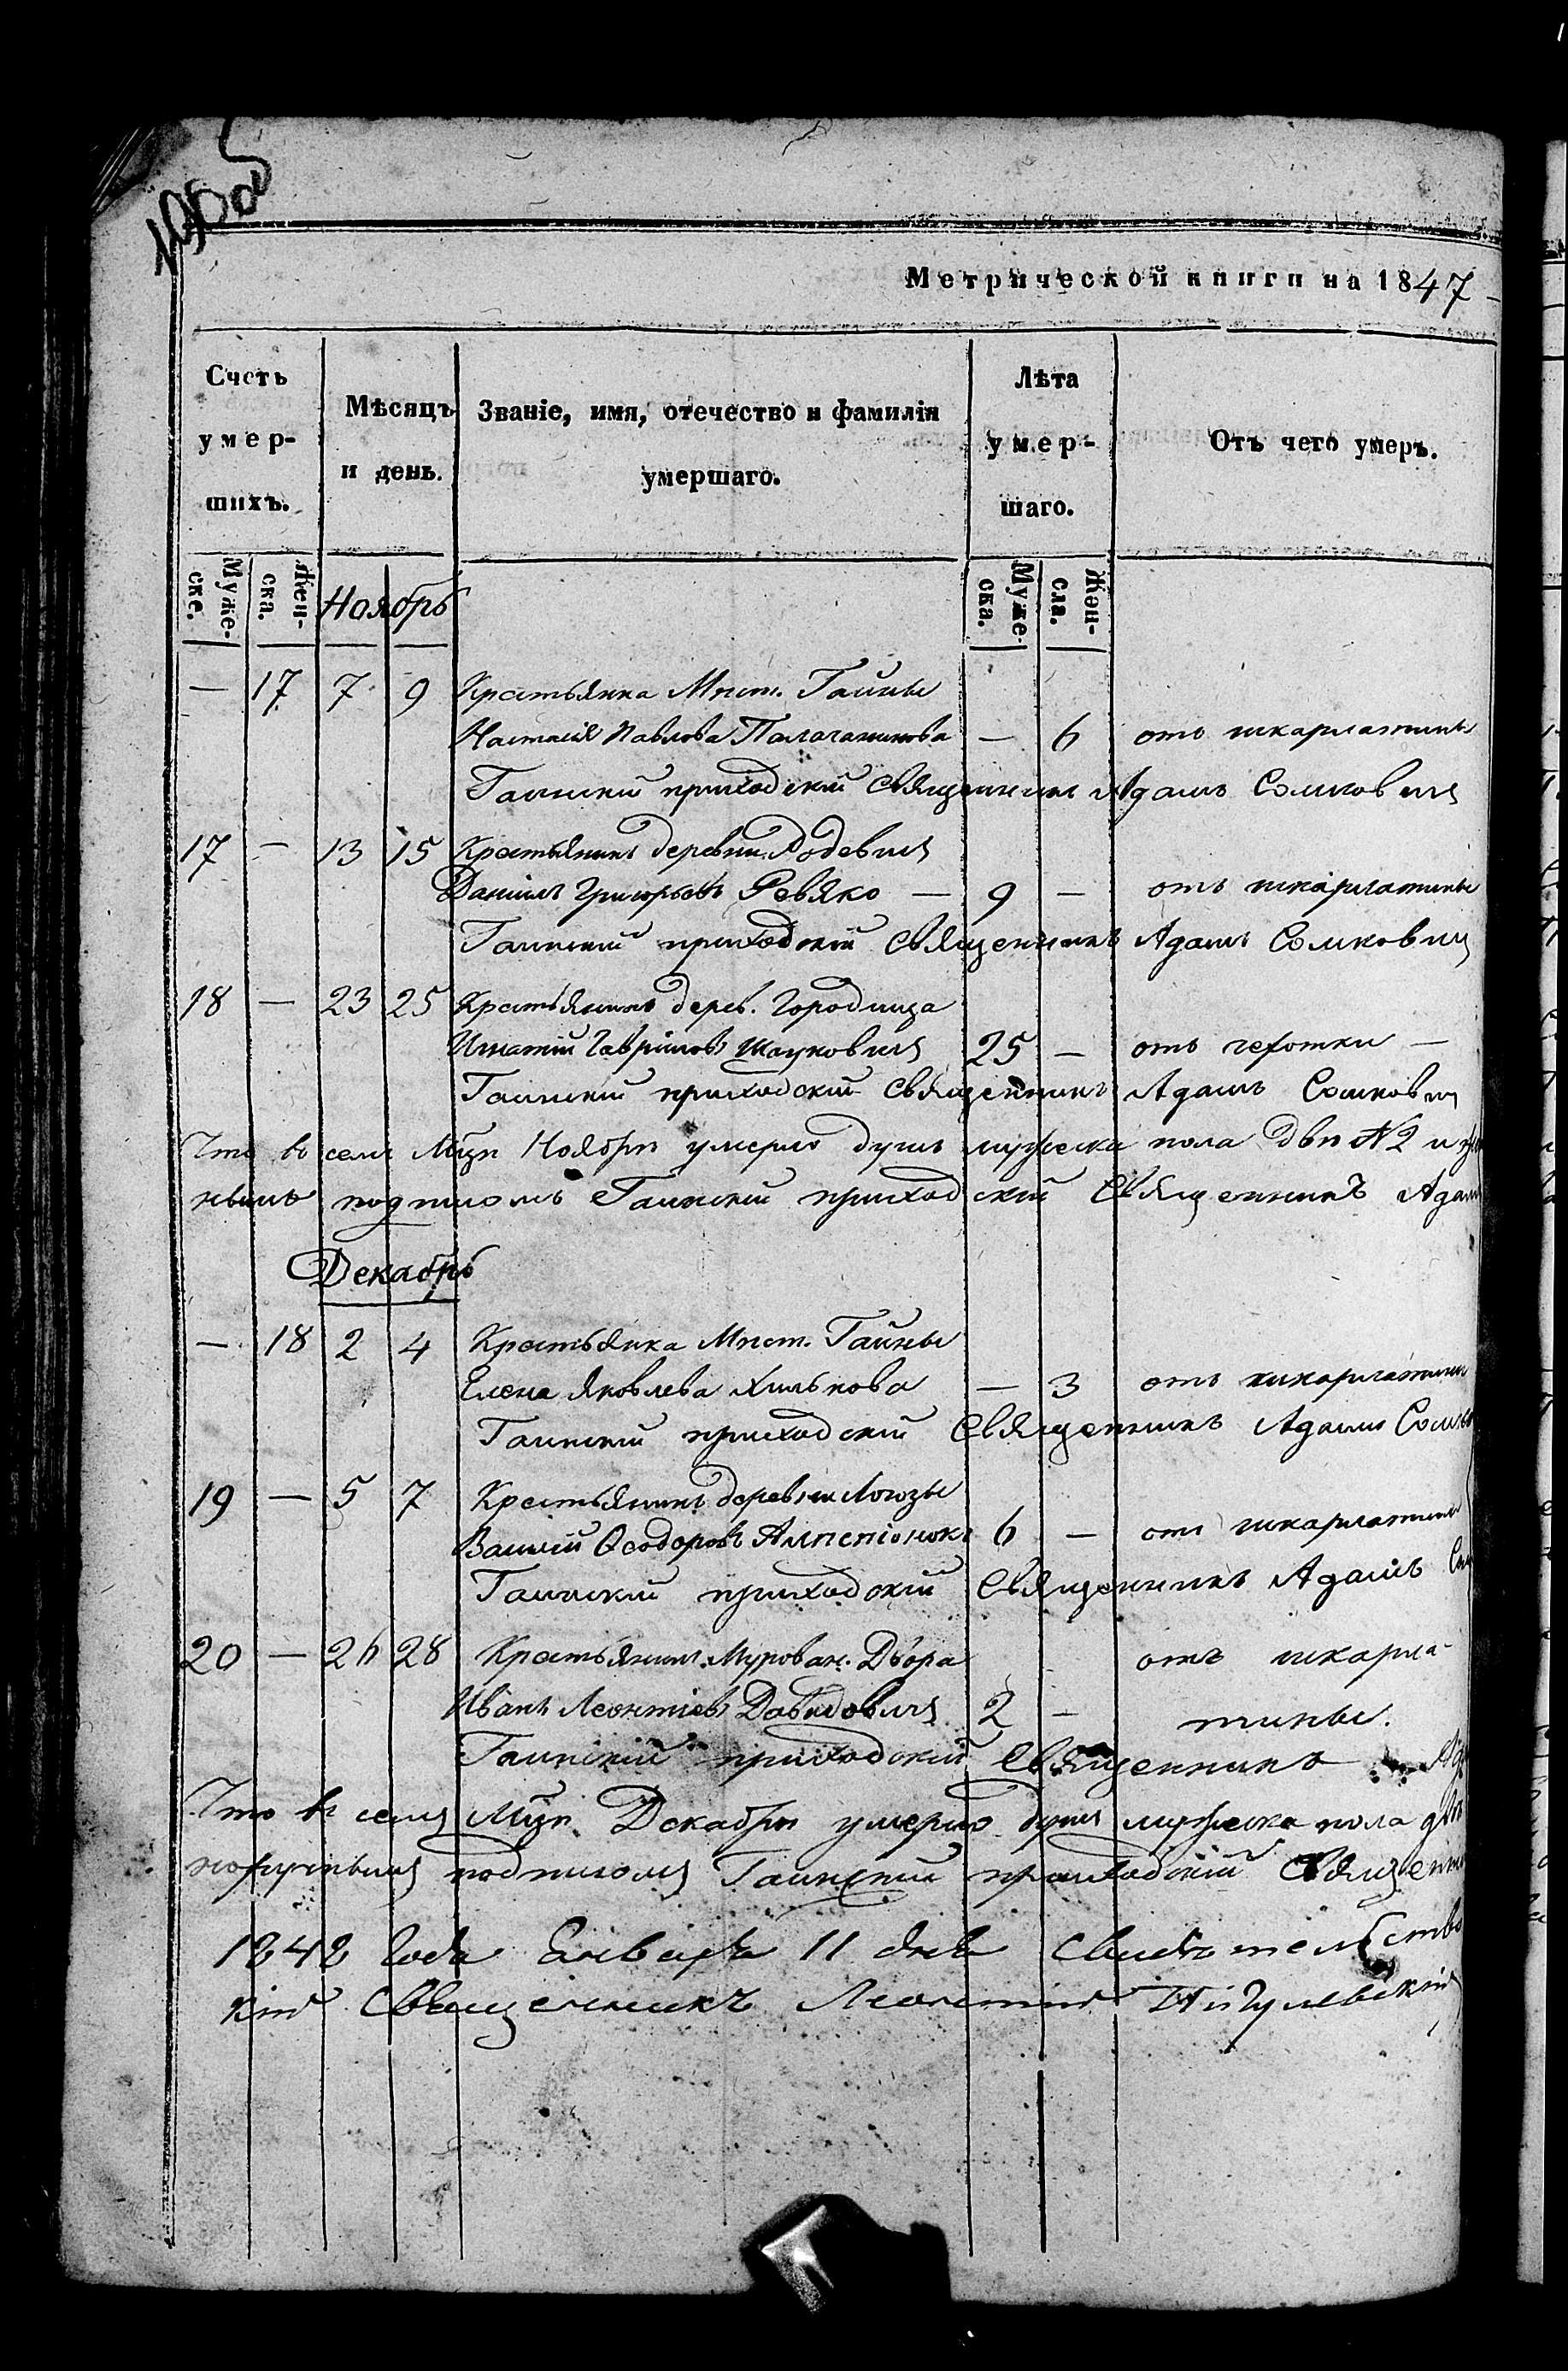 Метрической книги на 1847
Счетъ умер- шихъ.
Мѣсяцъ и день.
Званіе, имя, отечество и фамилія умершаго.
Лѣта умер- шаго.
Отъ чего умеръ.
Муже- ске.
Жен- ска.
Ноябрь
Муже- ска.
Жен- ска.
— 17 7 9 Крестьянка Мѣст. Гайны
Настасія Павлова — 6 отъ шкарлатины
Гаинскій приходскій Священникъ Адамъ Сомковичъ
17 — 13 15 Крестьянинъ деревни
Даніилъ Григорьевъ Ревяко — 9 — отъ шкарлатины
Гаинскій приходскій Священникъ Адамъ Сомковичъ
18 — 23 25 Крестьянинъ дерев. Городища
Игнатій Гавріиловъ 25 — отъ чехотки —
Гаинскій приходскій Священникъ Адамъ Сомкович
Что въ семъ Мцѣ Ноябрѣ умерло душъ мужеска пола двѣ № 2 и
подписомъ Гаинскій приходскій Священникъ Адам
Декабрь
— 18 2 4 Крестьянка Мѣст. Гайны
Елена Яковлева Хилькова — 3 отъ шкарлатины
Гаинскій приходскій Священникъ Адамъ Сомко
19 — 5 7 Крестьянинъ деревни Логозы
Василій Ѳеодоровъ 6 — отъ шкарлатины
Гаинскій приходскій Священникъ Адамъ Сом
20 — 26 28 Крестьянинъ Мурован. Двора отъ шкарла-
Иванъ Леонтіевъ Давидовичъ 2 — тины.
Гаинскій приходскій Священникъ
Что въ семъ Мцѣ Декабрѣ умерло душъ мужеска пола двѣ
подписомъ Гаинскій приходскій Священни
1848 Года Енваря 11 дня Свидѣтельство
Священникъ Леонтій